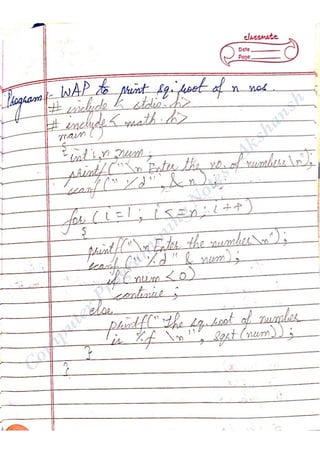 classmate
Date
Page
Program:- WAP to print sq. root of n nos.
# include < stdio.h>
# include < math.h>
main()
{
int i, n, num;
printf("\n Enter the no. of numbers \n");
scanf(" %d", & n);
for (i=1; i<=n; i++)
{
printf("\n Enter the number \n");
scanf(" %d" & num);
if (num < 0)
continue;
else
printf("The sq. root of number
is %f \n", sqrt(num));
}
}